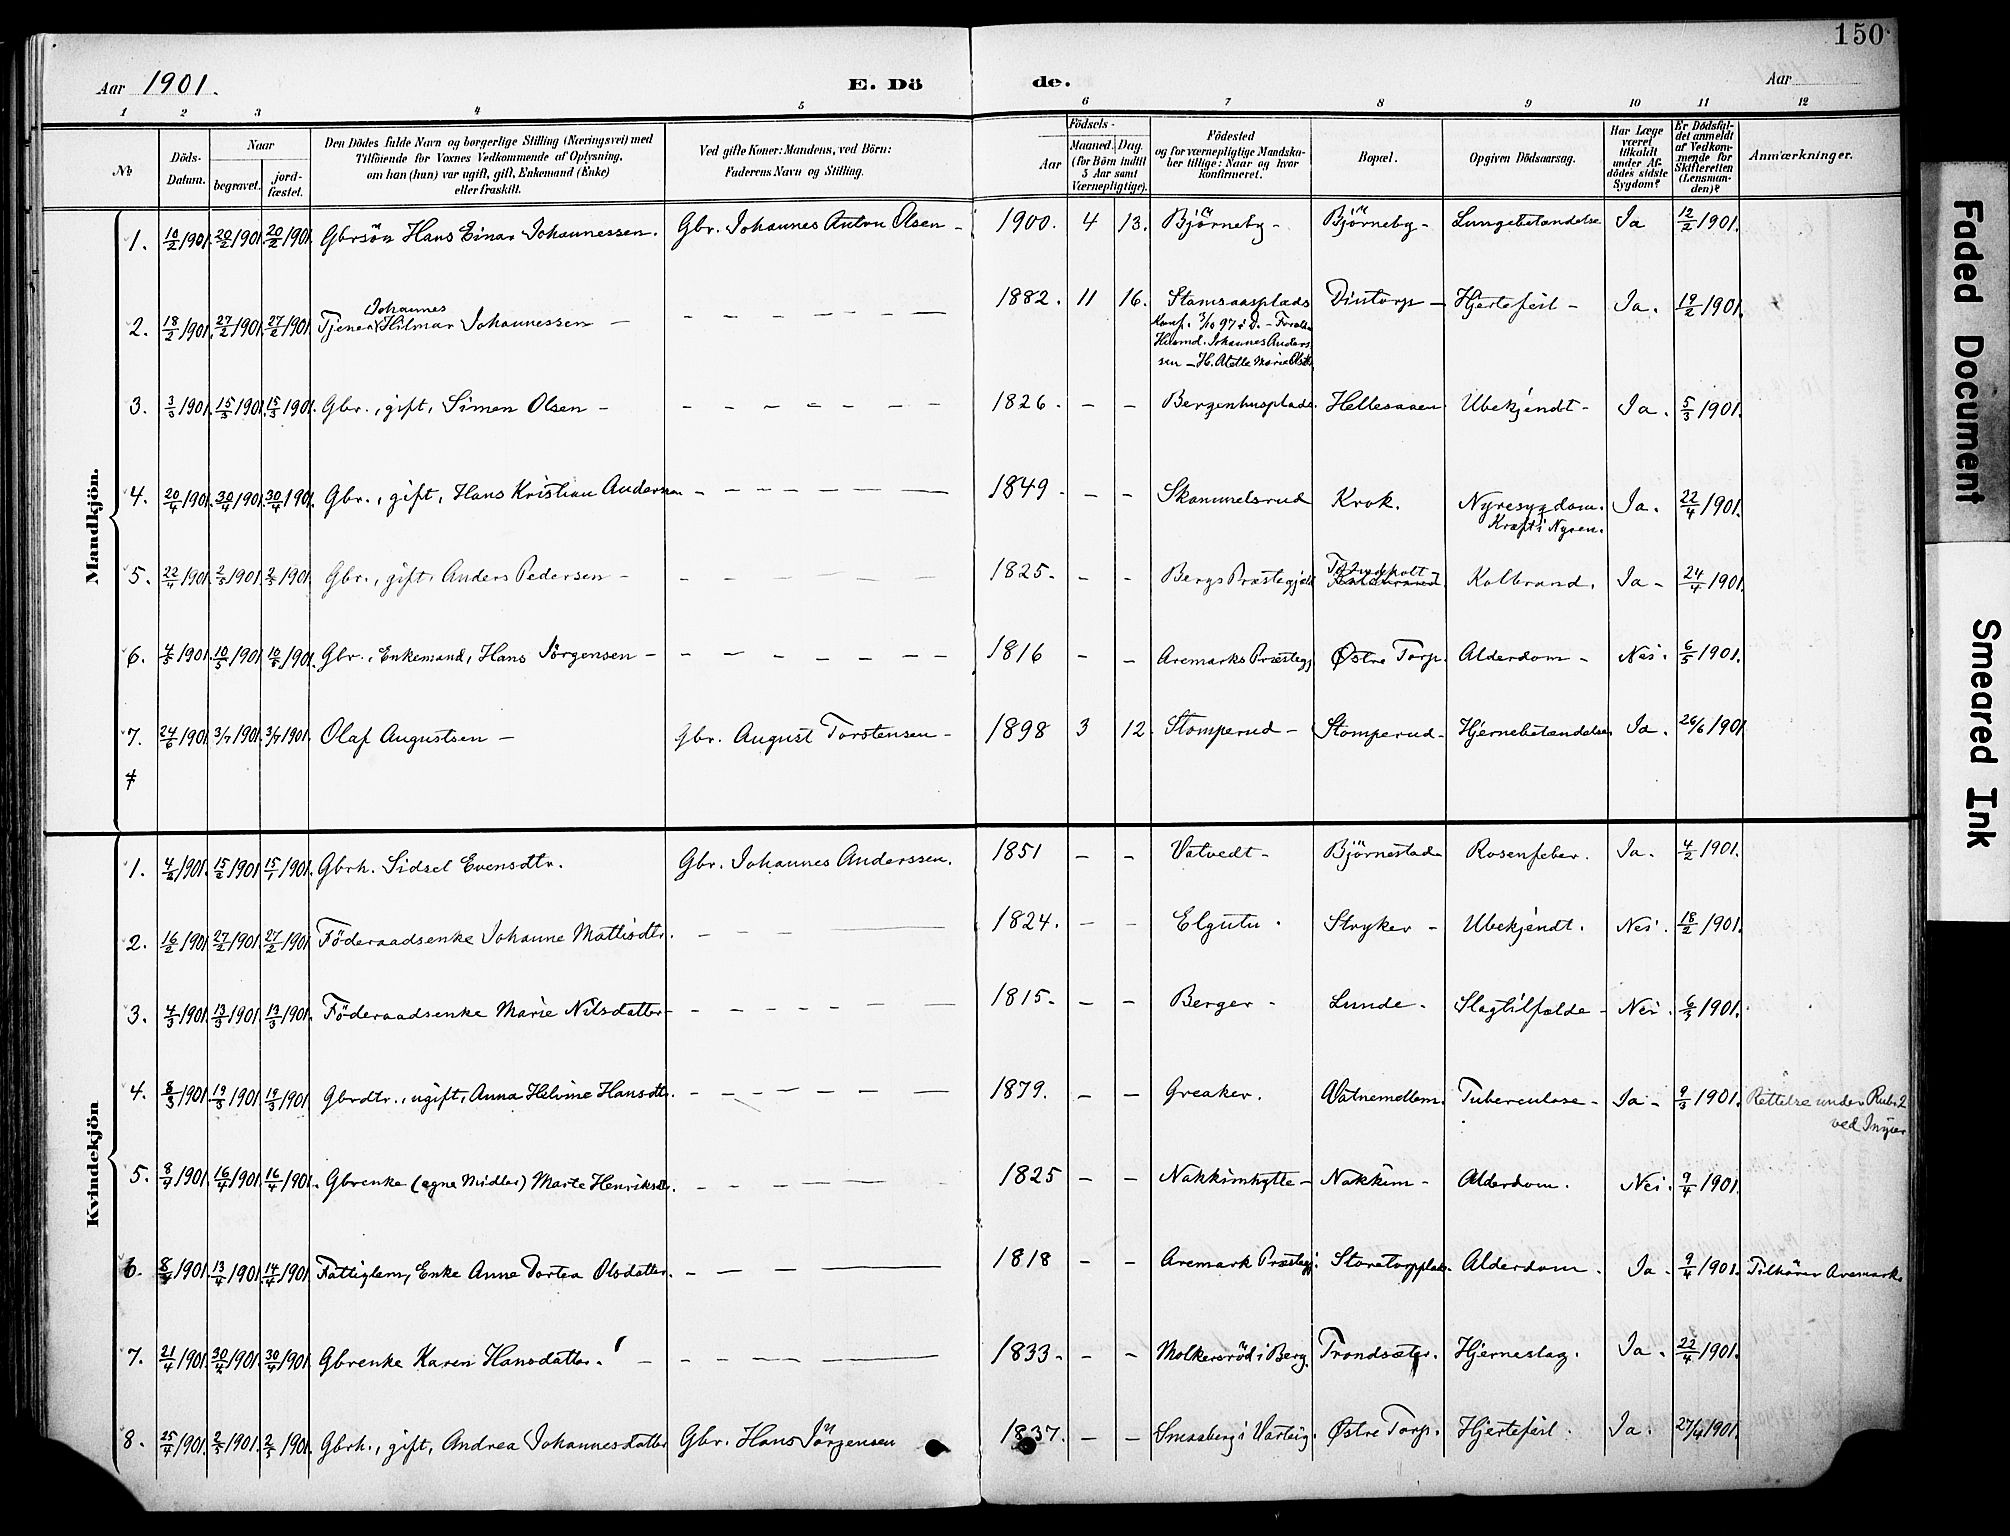 150
Aar 1901. E. Dö de. Aar
1 2 3 4 5 6 7 8 9 10 11 12
№ Döds-Datum. Naar begravet. jord-fæstet. Den Dödes fulde Navn og borgerlige Stilling (Næringsvei) med Tilföiende for Voxnes Vedkommende af Oplysning, om han (hun) var ugift, gift, Enkemand (Enke) eller fraskilt. Ved gifte Koner: Mandens, ved Börn: Faderens Navn og Stilling. Födsels- Aar Maaned. Dag. (for Börn indtil 5 Aar samt Værnepligtige). Födested og for værnepligtige Mandskaber tillige: Naar og hvor konfirmeret. Bopæl. Opgiven Dödsaarsag. Har Læge været tilkaldt under Afdödes sidste Sygdom? Er Dödsfaldet anmeldt af Vedkommende for Skifteretten (Lensmanden)? Anmærkninger.
Mandkjön.
1. 10/2 1901. 20/2 1901 20/2 1901. Gbrsön Hans Einar Johannessen. Gbr. Johannes Anton Olsen - 1900. 4 13. Björneby - Björneby - Lungebetændelse Ja 12/2 1901.
2. 18/2 1901. 27/2 1901 27/2 1901. Tjener Johannes Hilmar Johannessen - 1882. 11 16. Stamsaasplads Konf. 3/10 97 i D. - Foræld. Husmd. Johannes Anderssen - H. Atelle Maria Olsdtr. Dintorp - Hjertefeil - Ja. 19/2 1901.
3. 3/3 1901. 15/3 1901 15/3 1901. Gbr., gift, Simen Olsen - 1826. - - Bergenhusplads. Hellesaaen Ubekjendt - Ja. 5/3 1901.
4. 20/4 1901. 30/4 1901. 30/4 1901. Gbr., gift, Hans Kristian Anderssen - 1849. - - Skammelsrud Krok. Nyresygdom. Kræft i Nyren. Ja. 22/4 1901.
5. 22/4 1901. 2/5 1901. 2/5 1901. Gbr., gift, Anders Pedersen - 1825. - - Bergs Præstegjeld Kolbrand. Ja - 24/4 1901.
6. 4/5 1901. 10/5 1901 10/5 1901. Gbr., Enkemand, Hans Jörgensen - 1816 - - Aremarks Præstegj Østre Torp. Alderdom - Nei. 6/5 1901.
7. 24/6 1901 3/7 1901. 3/7 1901. Olaf Augustsen - Gbr. August Torstensen - 1898 3 12. Stomperud - Stomperud - Hjernebetændelse Ja. 26/6 1901
Kvindekjön
1. 4/2 1901. 15/2 1901 15/1 1901. Gbrh. Sidsel Evensdtr. Gbr. Johannes Anderssen. 1851 - - Vatvedt - Björnestad Rosenfeber. Ja. 4/2 1901.
2. 16/2 1901 27/2 1901. 27/2 1901 Föderaadsenke Johanne Mattisdtr. 1824. - - Elgutu. Stryker - Ubekjendt. Nei. 18/2 1901.
3. 4/3 1901. 13/3 1901 13/3 1901. Föderaadsenke Marie Nilsdatter - 1815. - - Berger - Lunde. Slagtilfælde - Nei. 6/3 1901.
4. 8/3 1901. 19/3 1901. 19/3 1901. Gbrdtr., ugift, Anna Helvine Hansdtr. 1879. - - Greaker. Vatnemellem. Tuberculose - Ja - 9/3 1901. Rettelse under Rub. 2
5. 8/4 1901. 16/4 1901. 16/4 1901. Gbrenke (egne Midler) Marte Henriksdtr. 1825 - - Nakkimhytte - Nakkim - Alderdom. Nei. 9/4 1901.
6. 8/4 1901. 13/4 1901. 14/4 1901. Fattiglem, Enke Anne Dortea Olsdatter. 1818 - - Aremark Præstegj. Storetorpplads. Alderdom. Ja. 9/4 1901. Tilhörer Aremark.
7. 21/4 1901. 30/4 1901. 30/4 1901. Gbrenke Karen Hansdatter. 1833. - - Molkersröd i Berg. Trondsæter. Hjerneslag. Ja. 22/4 1901.
8. 25/4 1901. 2/5 1901. 2/5 1901. Gbrh., gift, Andrea Johannesdatter Gbr. Hans Jörgensen 1837. - - Smaaberg i Varteig. Østre Torp. Hjertefeil. Ja. 27/4 1901.
Faded Document
Smeared Ink